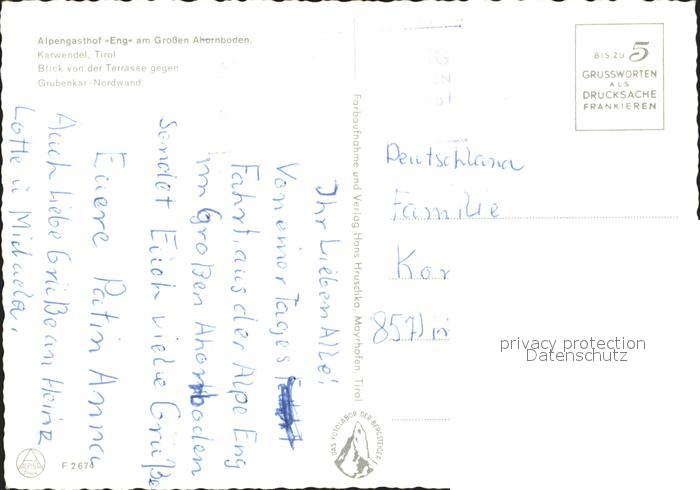 Alpengasthof »Eng« am Großen Ahornboden.
Karwendel, Tirol
Blick von der Terrasse gegen
Grubenkar-Nordwand
BIS ZU 5
GRUSSWORTEN
ALS
DRUCKSACHE
FRANKIEREN
Ihr Lieben Alle!
Von einer Tages
Fahrt, aus der Alpe Eng
im Großen Ahornboden
sendet Euch viele Grüße
Euere Patin Anna
Auch liebe Grüße an Heinz
Lotte u Michaela.
Farbaufnahme und Verlag Hans Hruschka, Mayrhofen, Tirol
Deutschland
Familie
Kor
857)
privacy protection
Datenschutz
DAS FOTOLABOR DER BERGSTEIGER
F 2674